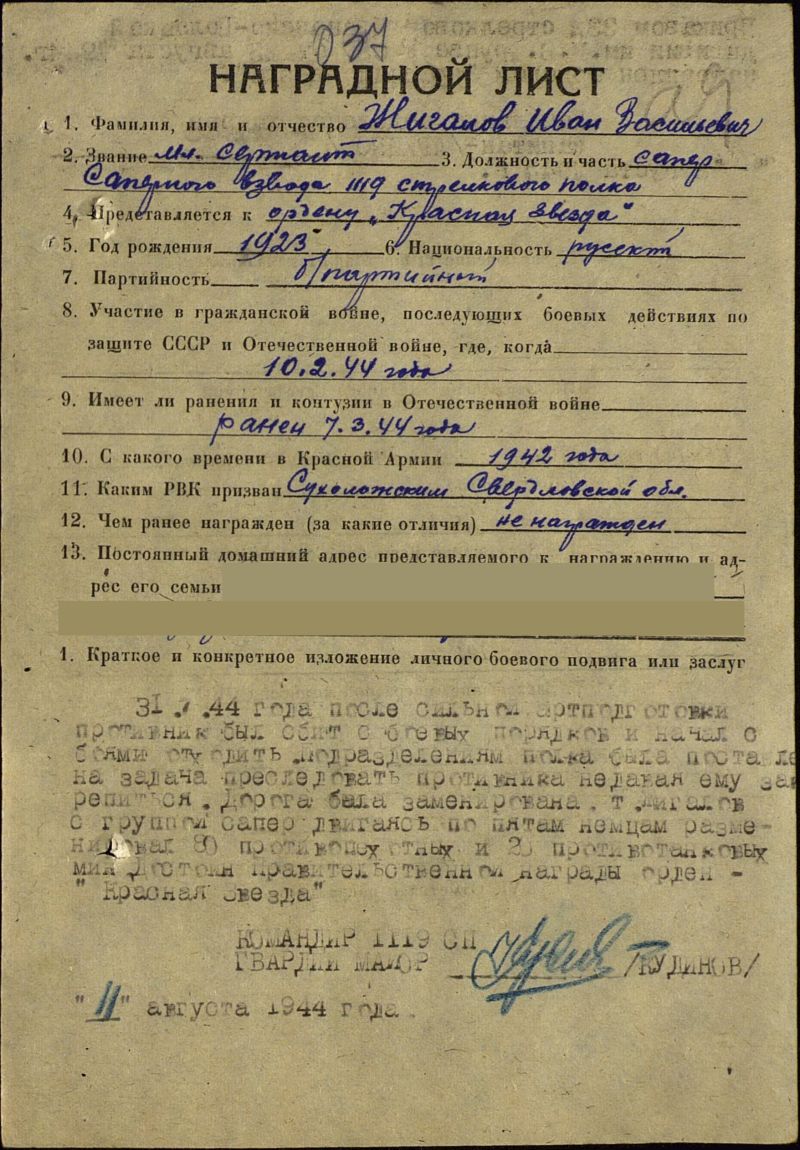 037
НАГРАДНОЙ ЛИСТ
1. Фамилия, имя и отчество Жигалов Иван Васильевич
2. Звание мл. сержант 3. Должность и часть сапер
саперного взвода 1119 стрелкового полка
4. Представляется к ордену „Красная звезда"
5. Год рождения 1923 6. Национальность русский
7. Партийность б/партийный
8. Участие в гражданской войне, последующих боевых действиях по
защите СССР и Отечественной войне, где, когда
10.2.44 года
9. Имеет ли ранения и контузии в Отечественной войне
ранен 7.3.44 года
10. С какого времени в Красной Армии 1942 года
11. Каким РВК призван Сухоложским Свердловской обл.
12. Чем ранее награжден (за какие отличия) не награжден
13. Постоянный домашний адрес представляемого к награждению и ад-
рес его семьи
1. Краткое и конкретное изложение личного боевого подвига или заслуг
31 .44 года после сильной артподготовки
противник был сбит с боевых порядков и начал с
боями отходить .подразделениям полка была поставле
на задача преследовать противника недавая ему зак
репиться . Дорога была заменирована . т Жигалов
с группой сапер двигаясь по пятам немцам разме-
нировал противопехотных и противотанковых
мин Достоин правительственной награды орден -
" Красная Звезда"
КОМАНДИР 1119 СП
ГВАРДИИ МАЙОР /КУДИНОВ/
"11" августа 1944 года.